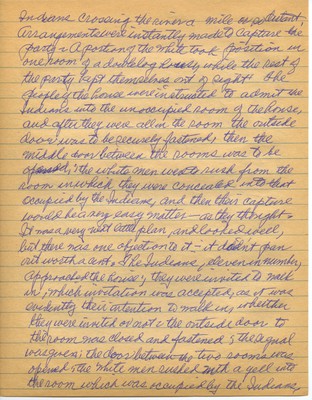 Indians crossing the river a mile or so distant,
Arrangements were instantly made to Capture the
party - A portion of the white took position in
one room of a double log house, while the rest of
the party kept themselves out of sight. The
people of the house were instructed to admit the
Indians into the unoccupied room of the house,
and after they were all in the room the outside
door was to be securely fastened; then the
middle door between the rooms was to be
opened; the white men were to rush from the
room in which they were concealed into that
occupied by the Indians, and then their capture
would be a very easy matter - as they thought -
It was a very neat plan, and looked well,
but there was one objection to it - it didn't pan
out worth a cent. The Indians, eleven in number,
approached the house; they were invited to walk
in; which invitation was accepted, as it was
evidently their intention to walk in, whether
they were invited or not; the outside door to
the room was closed and fastened; the signal
was given; the door between the two rooms was
opened; the white men rushed with a yell into
the room which was occupied by the Indians,